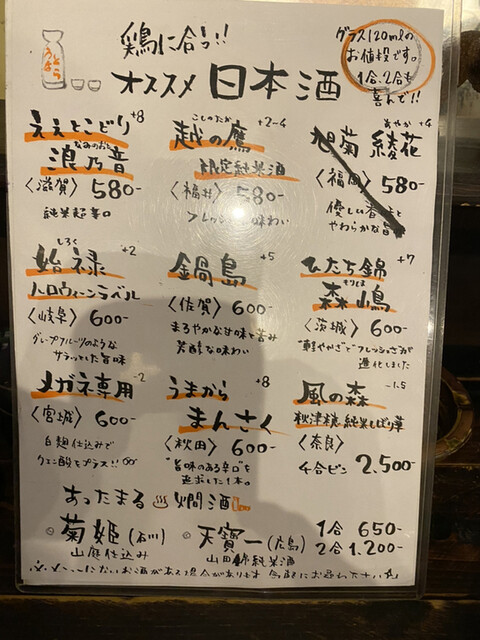 鶏に合う!!
オススメ 日本酒
グラス120mlの
お値段です。
1合・2合も
喜んで!!
ええとこどり +8
なみのおと
浪乃音
〈滋賀〉580-
純米超辛口
こしのたか +2~4
越の鷹
限定純米酒
〈福井〉580-
フレッシュ 味わい
あやか +4
旭菊 綾花
〈福岡〉580-
優しい香りと
やわらかな旨
しろく +2
始禄
ハロウィーンラベル
〈岐阜〉600-
グレープフルーツのような
サラッとした旨味
鍋島 +5
〈佐賀〉600-
まろやかな甘味と苦み
芳醇な味わい
ひたち錦 +7
森嶋
〈茨城〉600-
"軽やかさ"と"フレッシュさ"が
進化しました
メガネ専用 -2
〈宮城〉600-
白麹仕込みで
クエン酸をプラス!!
うまから +8
まんさく
〈秋田〉600-
"旨味のある辛口"を
追求した1本。
風の森 -1.5
秋津穂 純米しぼり華
〈奈良〉
4合ビン 2.500-
あったまる♨燗酒
菊姫(石川)
山廃仕込み
天寶一(広島)
山田錦純米酒
1合 650-
2合 1.200-
ないお酒がある場合があります